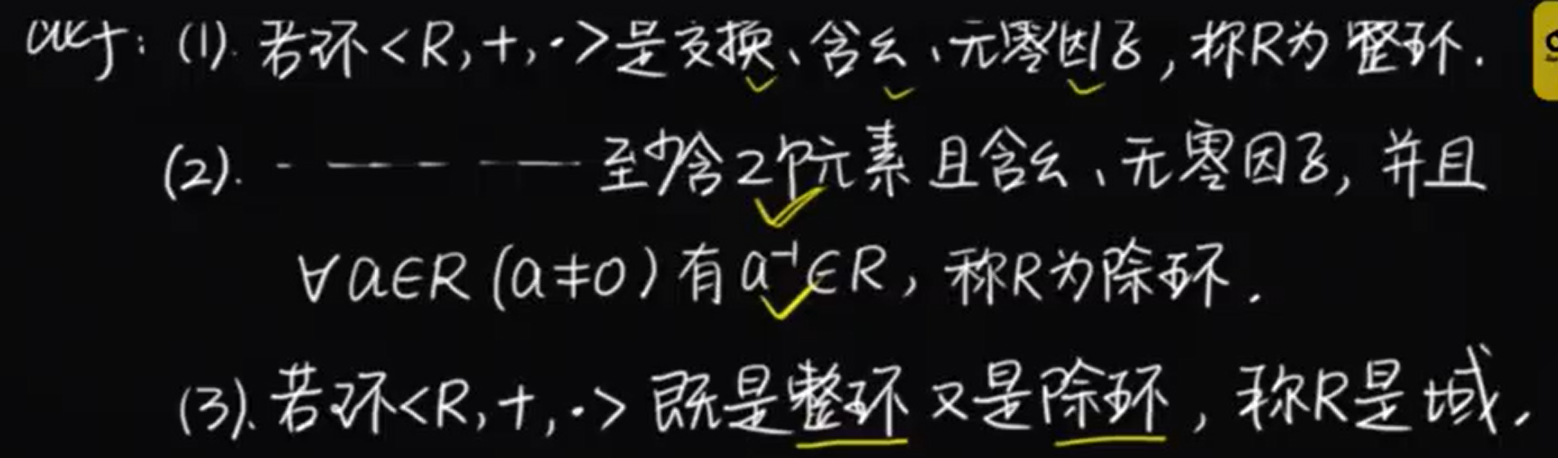 def: (1). 若环<R,+,·>是交换、含幺、无零因子,称R为整环.
(2). - — — —— 至少含2个元素且含幺、无零因子,并且
∀a∈R(a≠0)有a⁻¹∈R,称R为除环.
(3). 若环<R,+,·> 既是整环又是除环,称R是域.